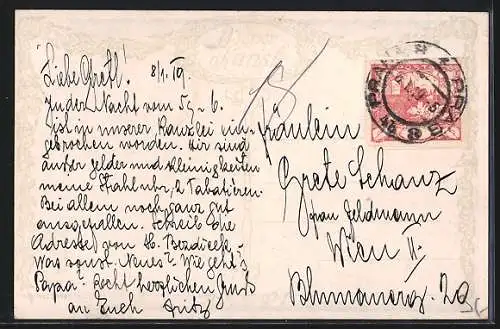 Liebe Gretl! 8/1. 19.
In der Nacht vom 5/ - 6.
ist in unserer Kanzlei ein-
gebrochen worden. Mir sind
außer Gelder und Kleinigkeiten
meine Stahluhr, 2 Tabatièren.
Bei allem noch ganz gut
ausgefallen. Schreib Eure
Adresse von
Was sonst Neues? Wie geht's
Papa? Recht herzlichen Gruß
an Euch Fritz
Fräulein
Grete Schanz
Wien II.
20
PRAHA
PRAG